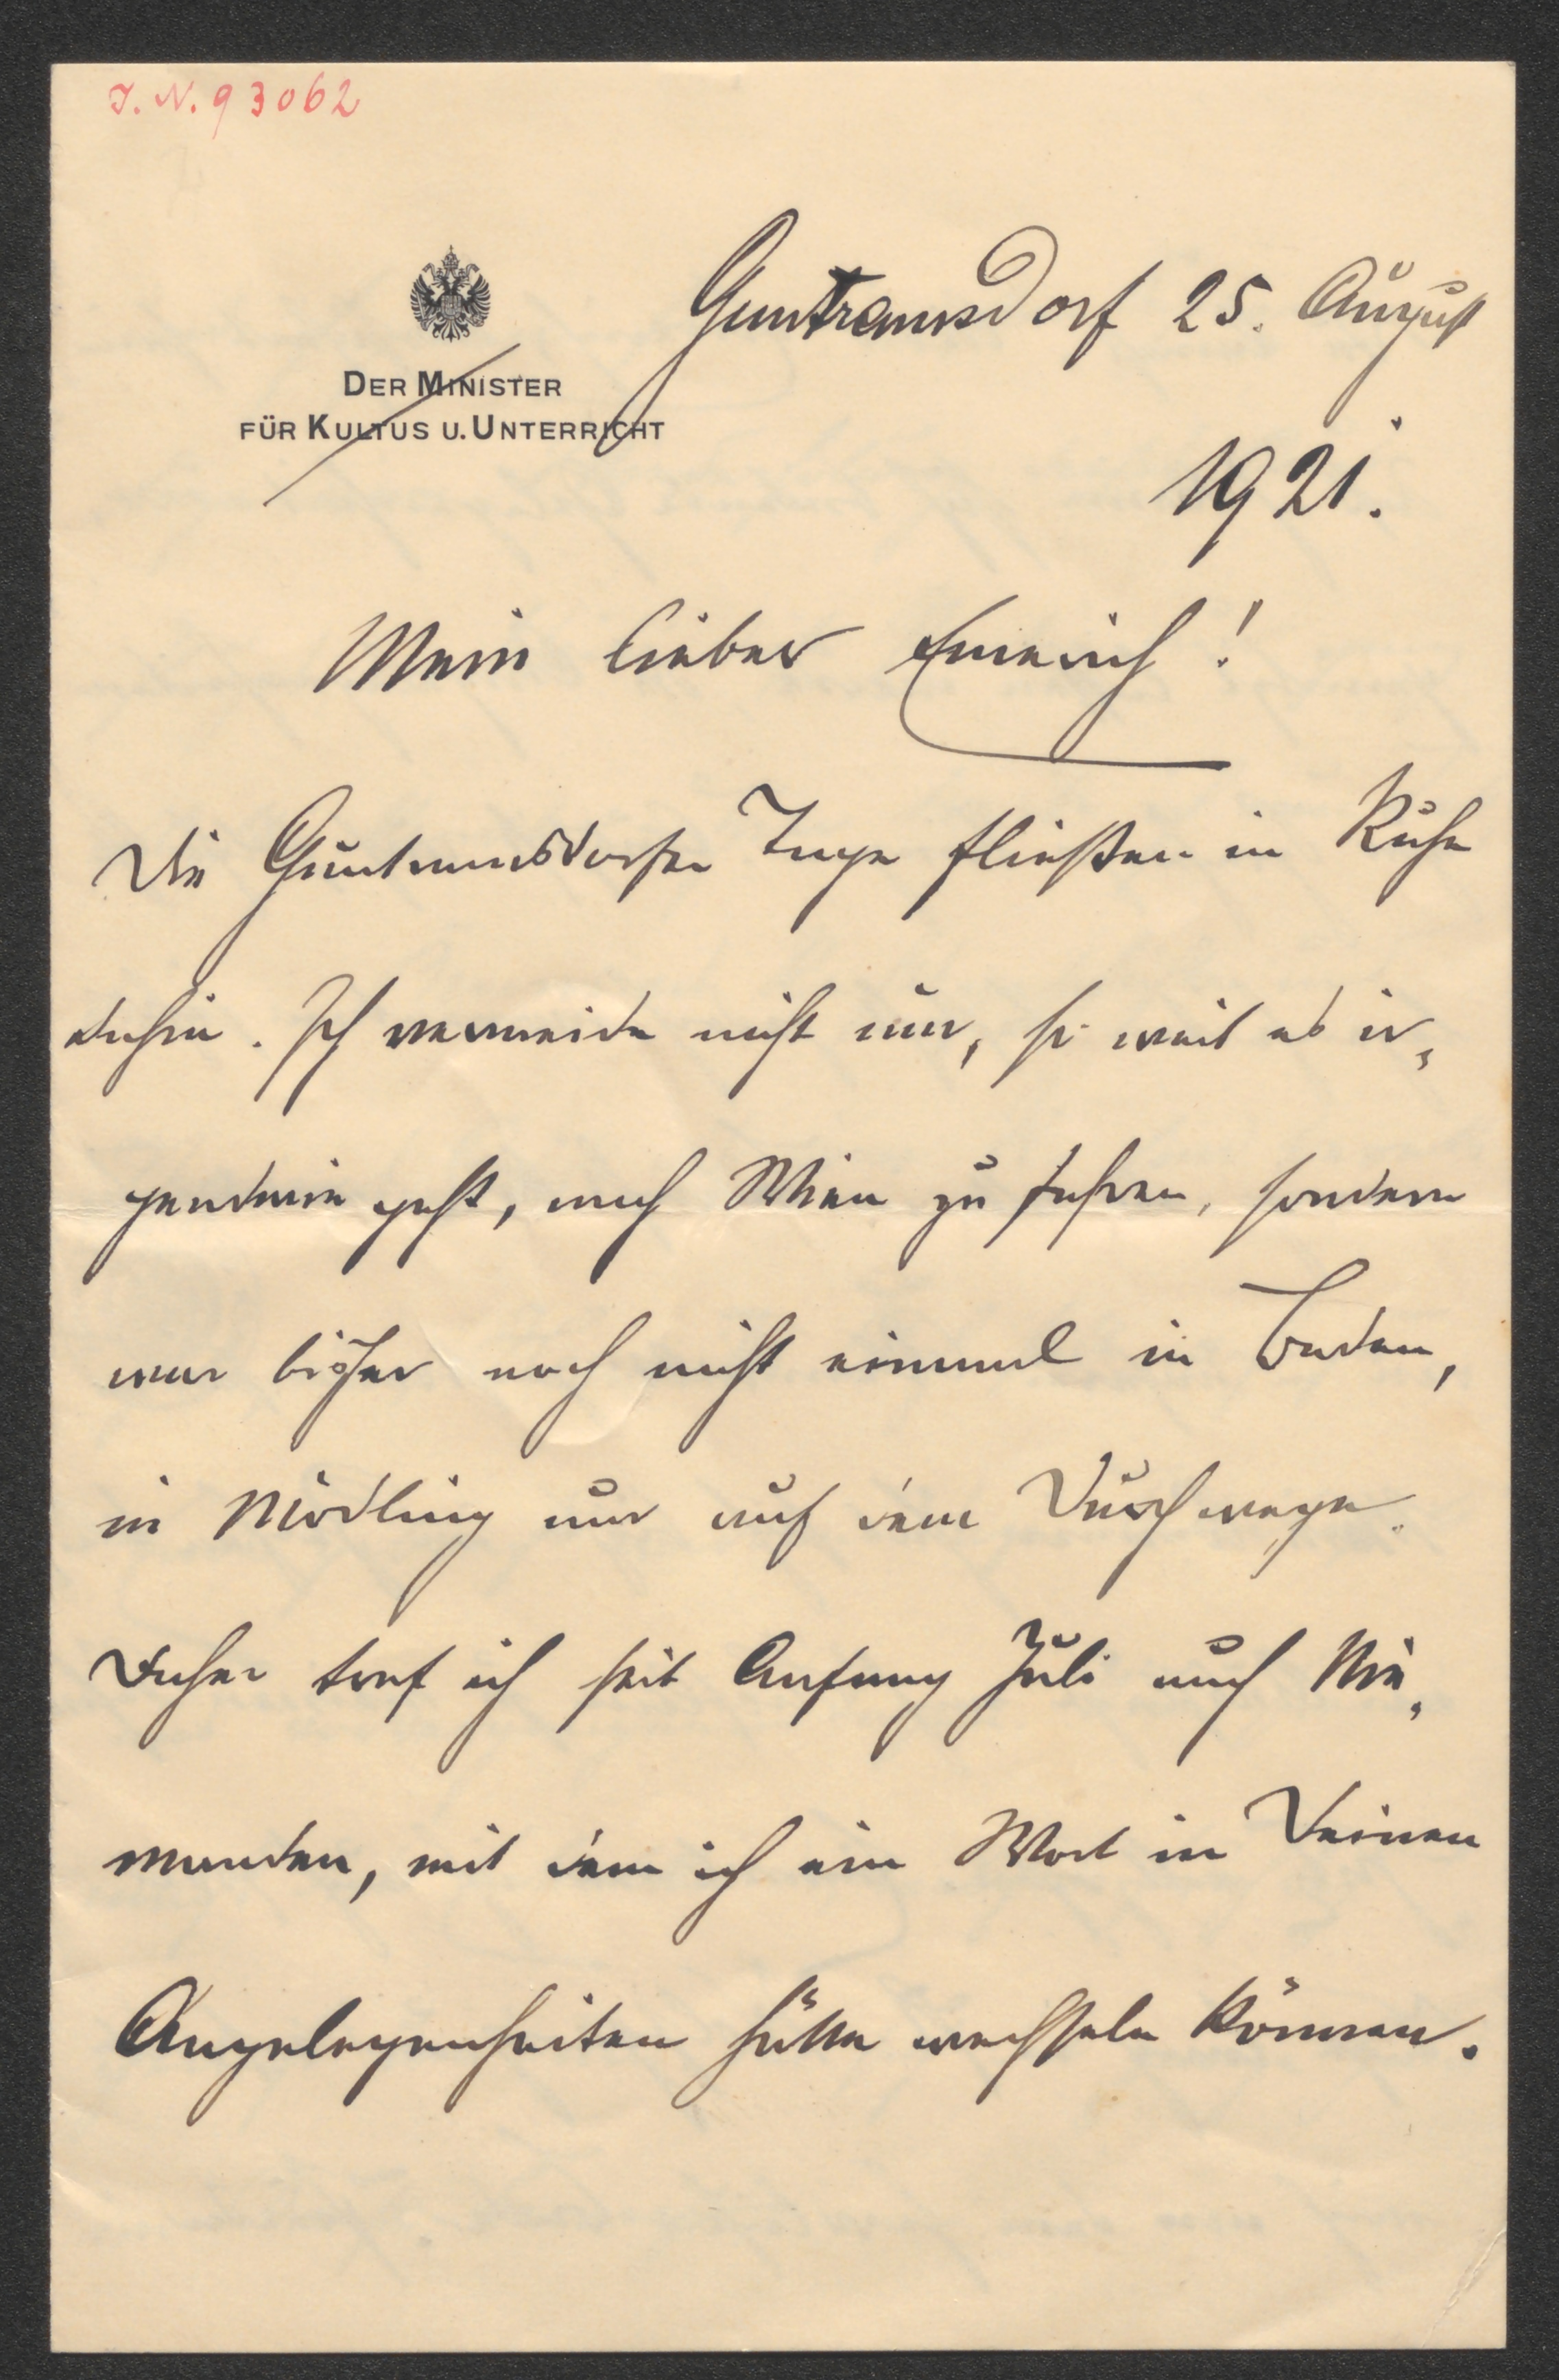 I. N. 93062
Guntramsdorf 25. August
DER MINISTER
FÜR KULTUS U. UNTERRICHT
1921.
Mein lieber Emerich!
Die Guntramsdorfer Tage fließen in Ruhe
dahin. Ich vermeide nicht nur, so weit es ir„
gendwie geht, nach Wien zu fahren, sondern
war bisher noch nicht einmal in Baden,
in Mödling nur auf dem Durchwege.
Daher traf ich seit Anfang Juli auch Nie„
manden, mit dem ich ein Wort in Deinen
Angelegenheiten hätte wechseln können.